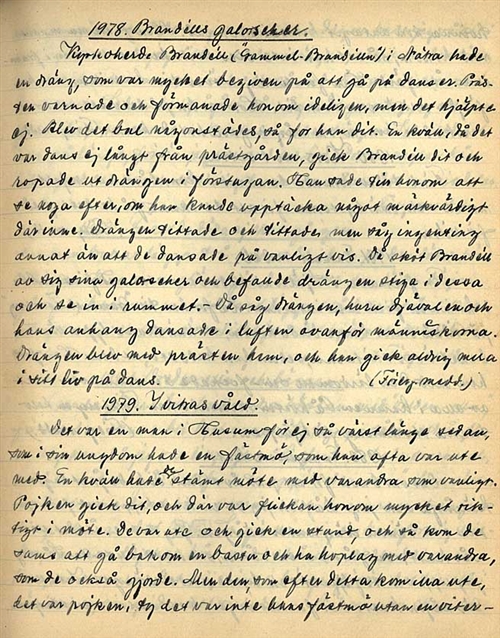 1978. Brandells galoscher.
Kyrkoherde Brandell ("Gammel-Brandelln") i Nätra hade
en dräng, som var mycket begiven på att gå på danser. Präs-
ten varnade och förmanade honom ideligen, men det hjälpte
ej. Blev det bal någonstädes, så for han dit. En kväll, då det
var dans ej långt från prästgården, gick Brandell dit och
ropade ut drängen i förstugan. Han sade till honom att
se noga efter, om han kunde upptäcka något märkvärdigt
därinne. Drängen tittade och tittade men såg ingenting
annat än att de dansade på vanligt vis. Då sköt Brandell
av sig sina galoscher och befallde drängen stiga i dessa
och se in i rummet. - Då såg drängen, huru djävulen och
hans anhang dansade i luften ovanför människorna.
Drängen blev med prästen hem, och han gick aldrig mera
i sitt liv på dans. (Föreg. medd.)
1979. I vitras våld.
Det var en man i Husum för ej så värst länge sedan,
som i sin ungdom hade en fästmö, som han ofta var ute
med. En kväll hade de stämt möte med varandra som vanligt.
Pojken gick dit, och där var flickan honom mycket rik-
tigt i möte. De var ute och gick en stund, och så kom de
sams att gå bakom en bastu och ha hoplag med varandra,
som de också gjorde. Men den, som efter detta kom illa ute,
det var pojken, ty det var inte hans fästmö utan en viter-